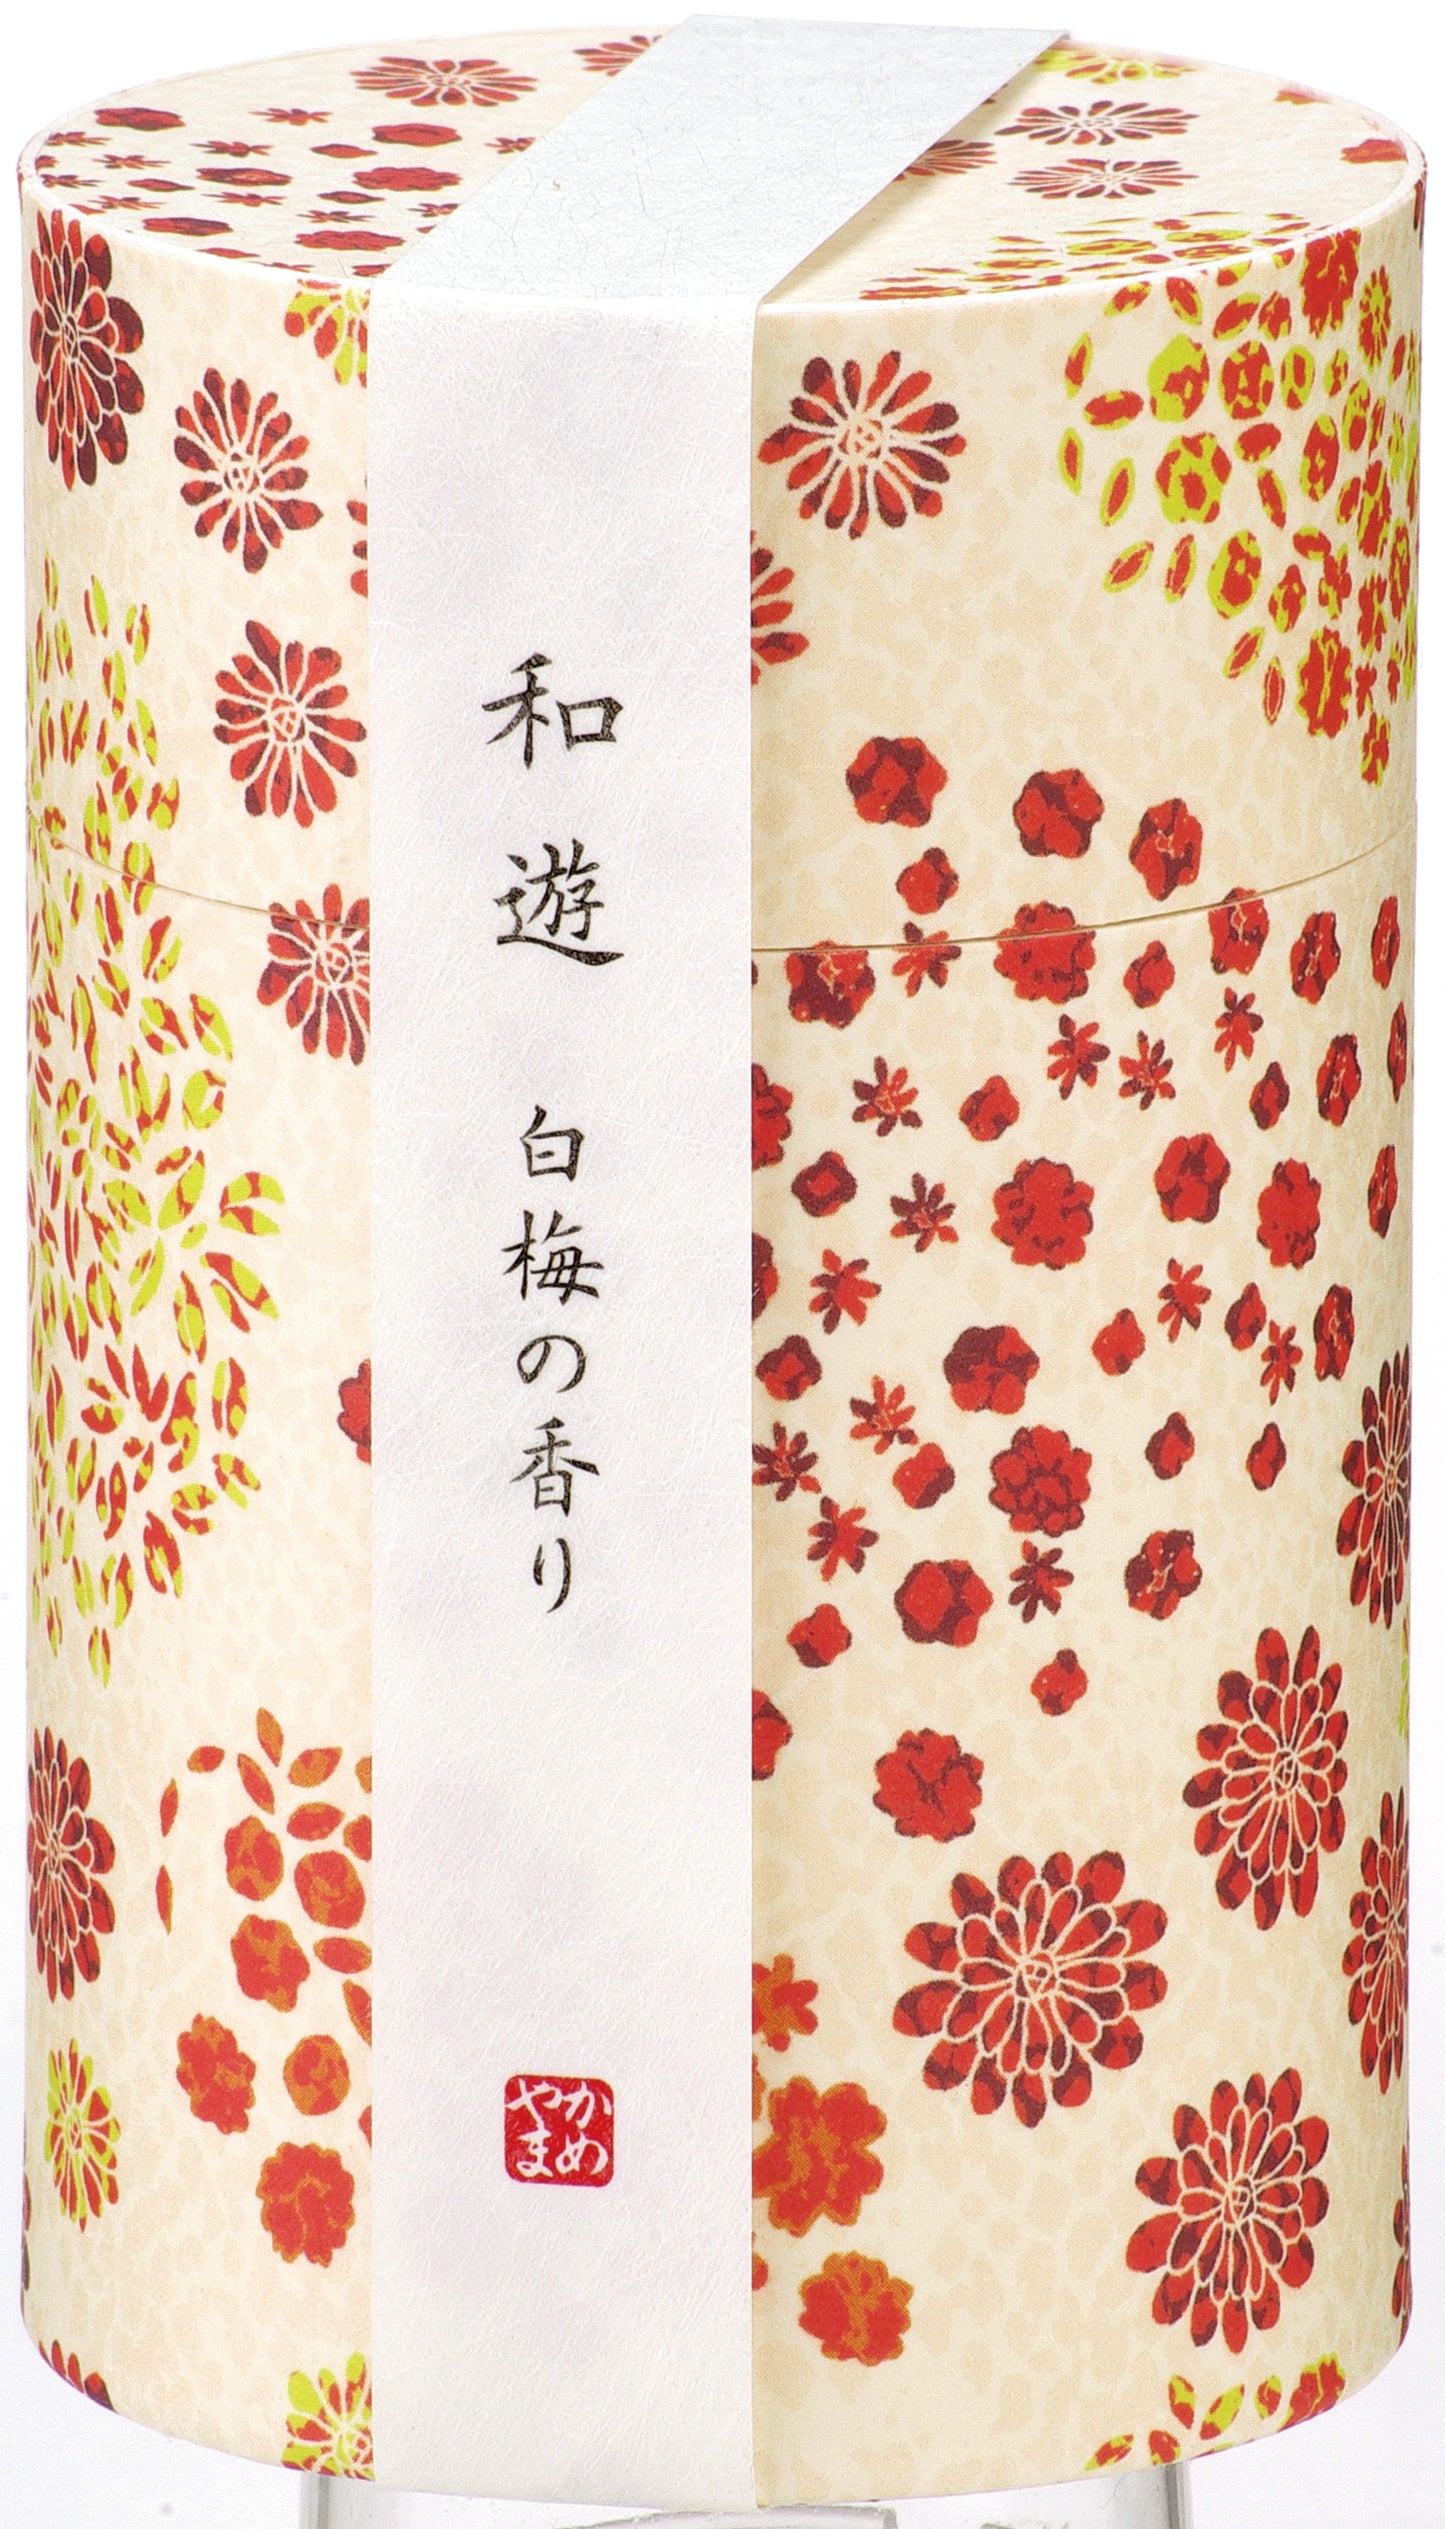 和遊
白梅の香り
かめ
やま